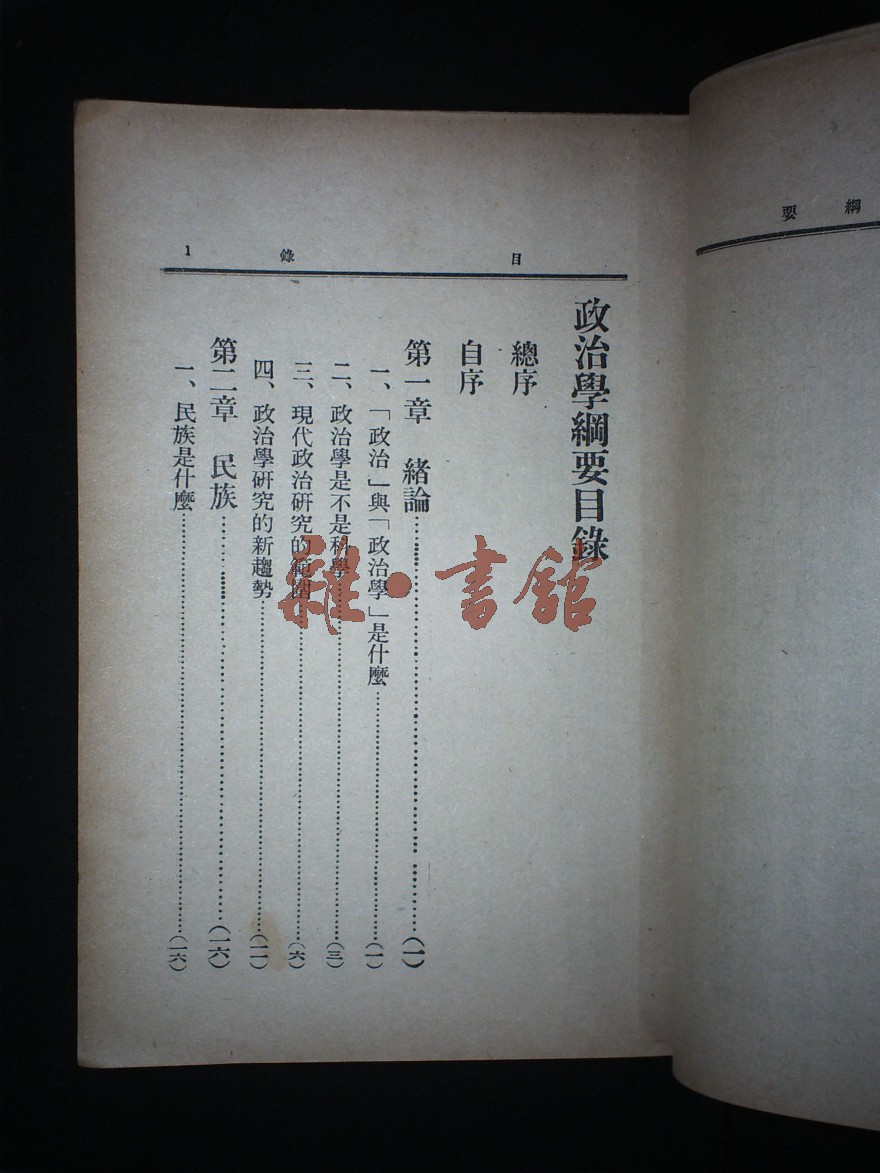 要綱
目錄 1
政治學綱要目錄
總序
自序
第一章 緒論……(一)
一、「政治」與「政治學」是什麼……(一)
二、政治學是不是科學……(三)
三、現代政治研究的範圍……(六)
四、政治學研究的新趨勢……(一一)
第二章 民族……(一六)
一、民族是什麼……(一六)
雜·書館